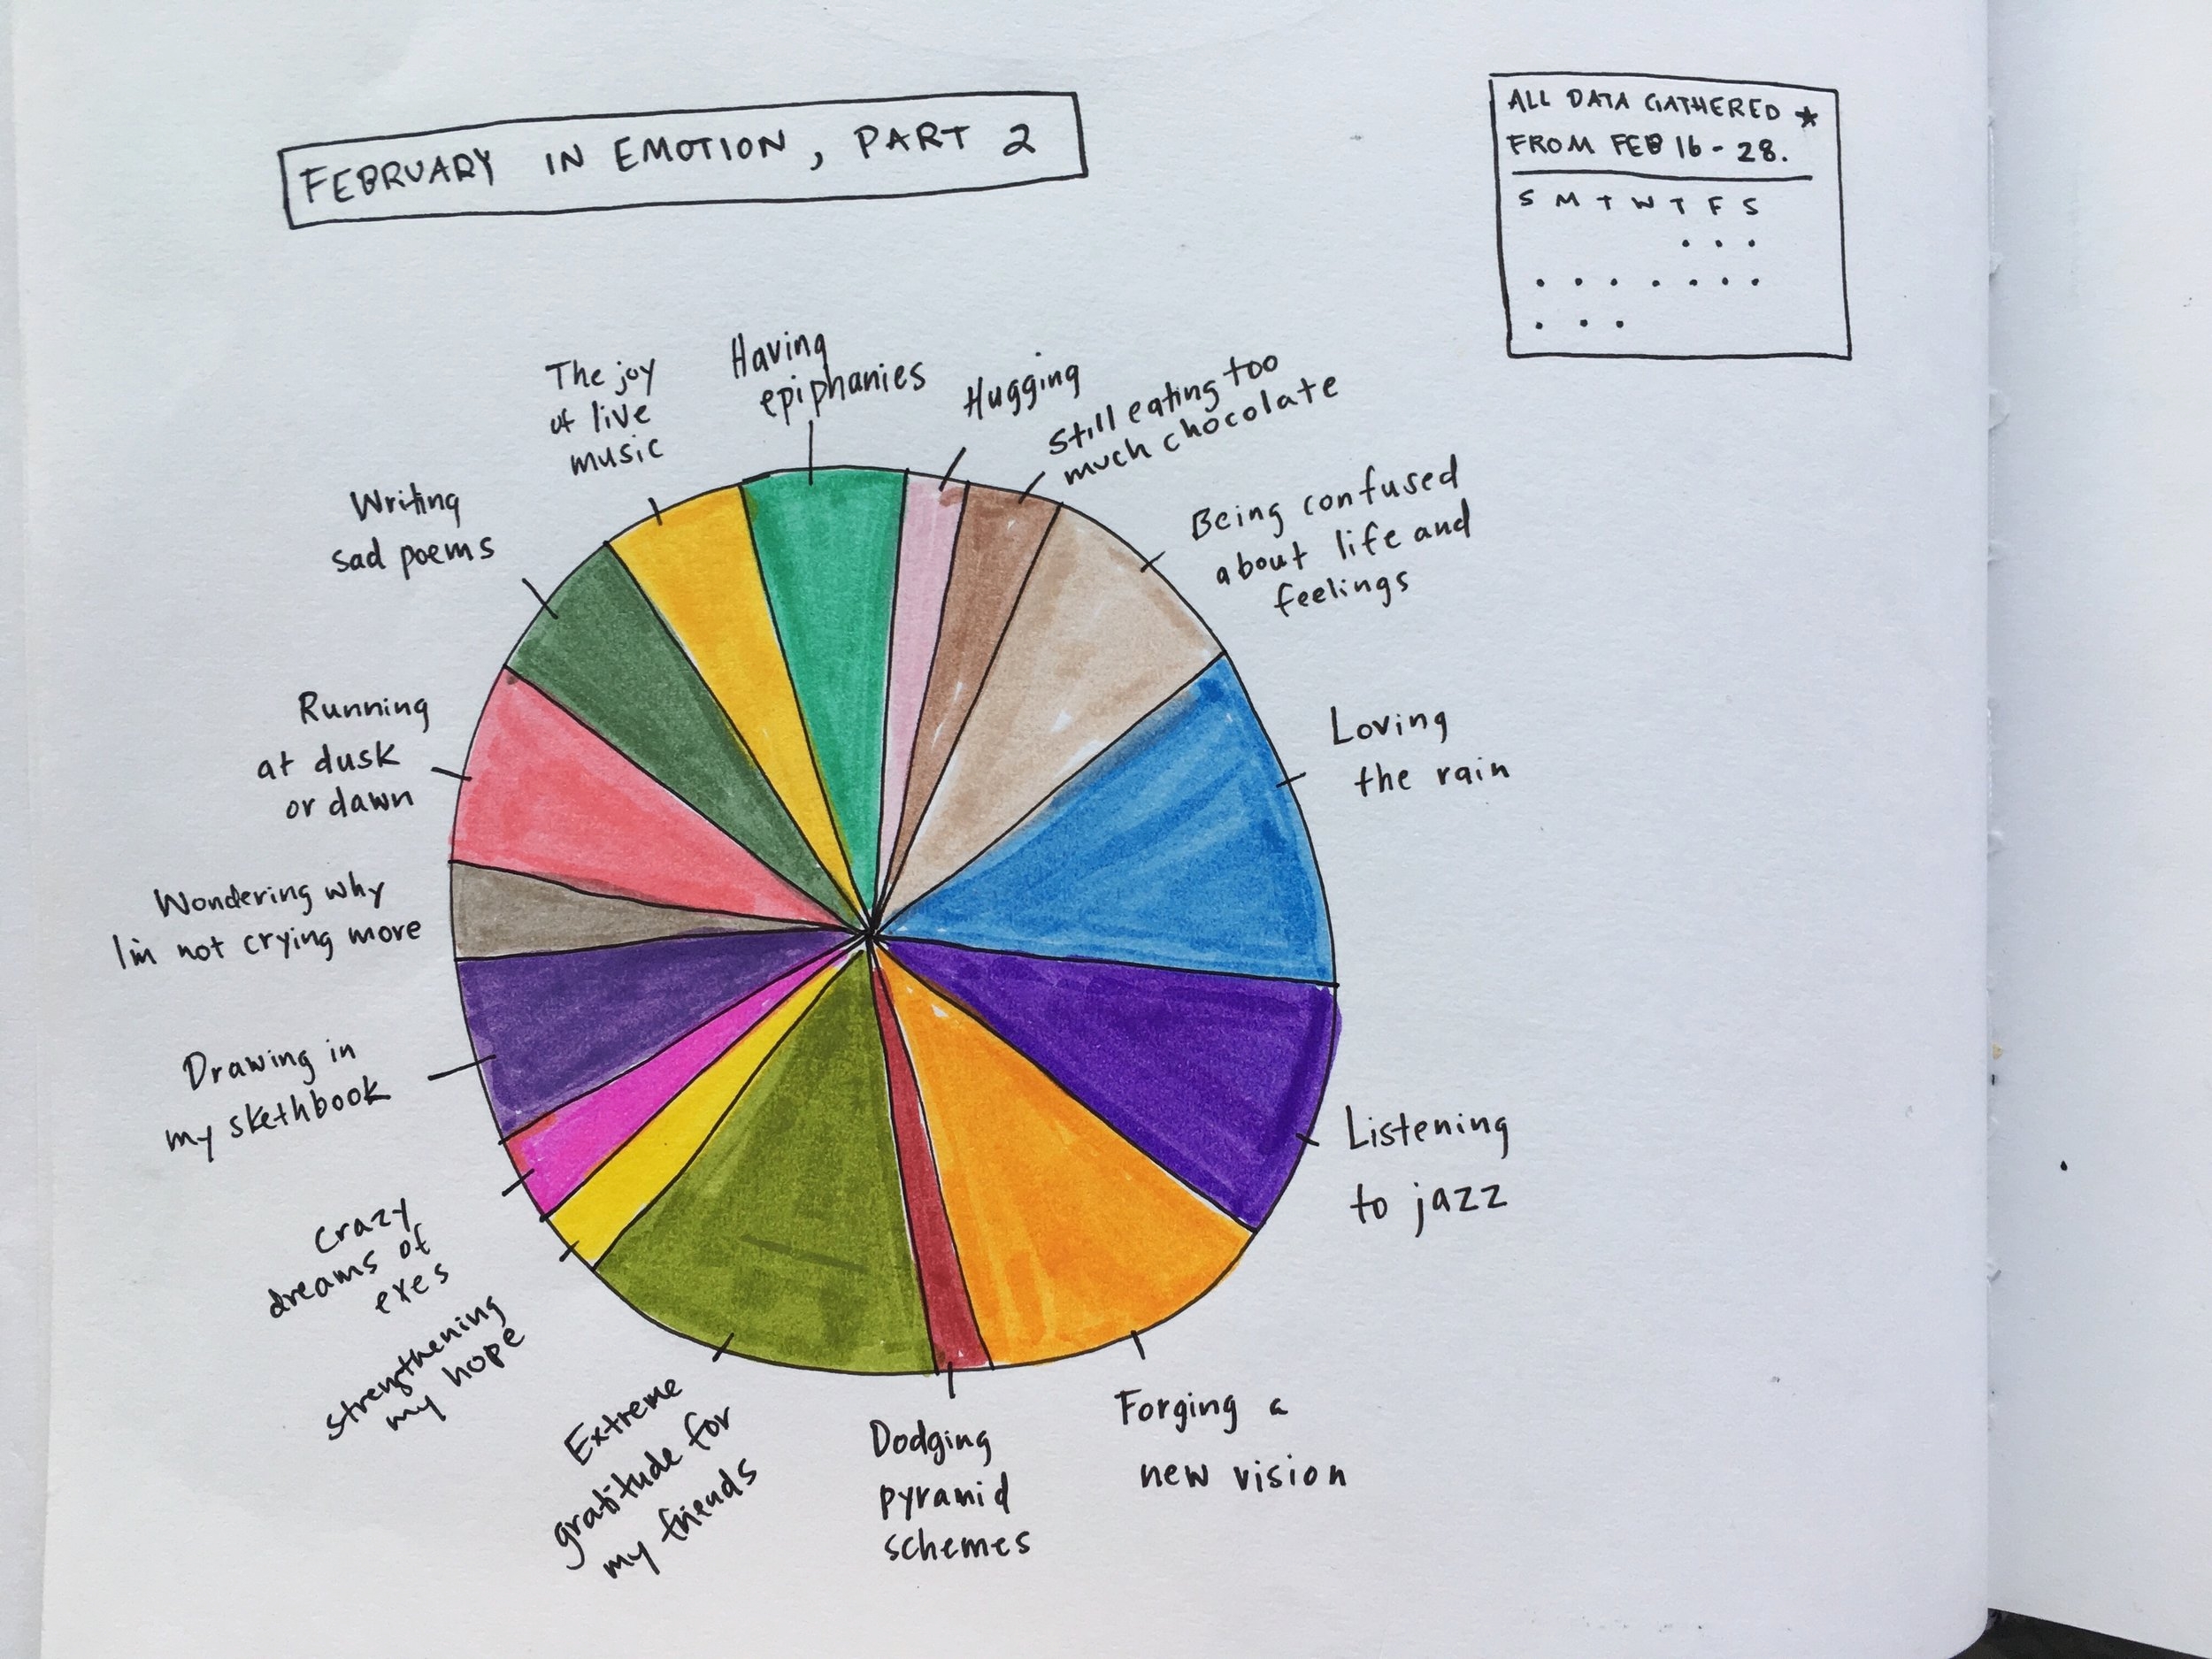 FEBRUARY IN EMOTION, PART 2
ALL DATA GATHERED ★
FROM FEB 16-28.
S M T W T F S
The joy
of live
music
Having
epiphanies
Hugging
Still eating too
much chocolate
Being confused
about life and
feelings
Loving
the rain
Listening
to jazz
Forging a
new vision
Dodging
pyramid
schemes
Extreme
gratitude for
my friends
strengthening
my hope
crazy
dreams of
exes
Drawing in
my skethbook
Wondering why
I'm not crying more
Running
at dusk
or dawn
Writing
sad poems